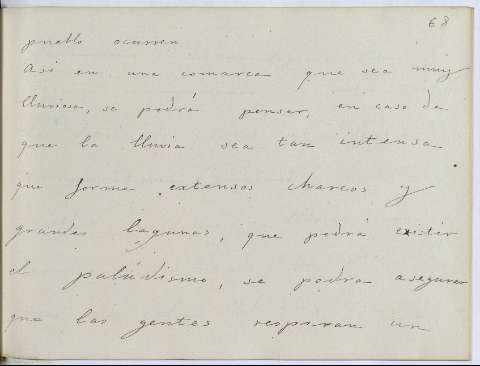 68
pueblo ocurren
Asi en una comarca que sea muy
lluviosa, se podrá pensar, en caso de
que la lluvia sea tan intensa
que forme extensos charcos y
grandes lagunas, que podrá existir
el palúdismo, se podra asegurar
que las gentes respiran un